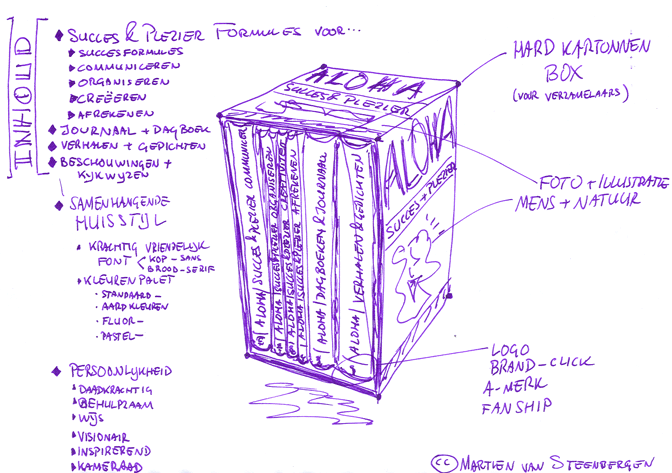 INHOUD
SUCCES & PLEZIER FORMULES VOOR...
SUCCESFORMULES
COMMUNICEREN
ORGANISEREN
CREËEREN
AFREKENEN
JOURNAAL + DAGBOEK
VERHALEN + GEDICHTEN
BESCHOUWINGEN +
KIJKWYZEN
SAMENHANGENDE
HUISSTIJL
KRACHTIG VRIENDELIJK
FONT < KOP - SANS
BROOD - SERIF
KLEURENPALET
STANDAARD -
AARDKLEUREN
FLUOR -
PASTEL -
PERSOONLYKHEID
DAADKRACHTIG
BEHULPZAAM
WIJS
VISIONAIR
INSPIREREND
KAMERAAD
ALOHA
SUCCES & PLEZIER
ALOHA
SUCCES + PLEZIER
ALOHA | SUCCES & PLEZIER COMMUNICEREN
ALOHA | SUCCES & PLEZIER ORGANISEREN
ALOHA | SUCCES & PLEZIER CREATIVITEIT
ALOHA | SUCCES & PLEZIER AFREKENEN
ALOHA | DAGBOEKEN & JOURNAAL
ALOHA | VERHALEN & GEDICHTEN
HARD KARTONNEN
BOX
(VOOR VERZAMELAARS)
FOTO + ILLUSTRATIE
MENS + NATUUR
LOGO
BRAND-CLICK
A-MERK
FANSHIP
cc MARTIEN VAN STEENBERGEN